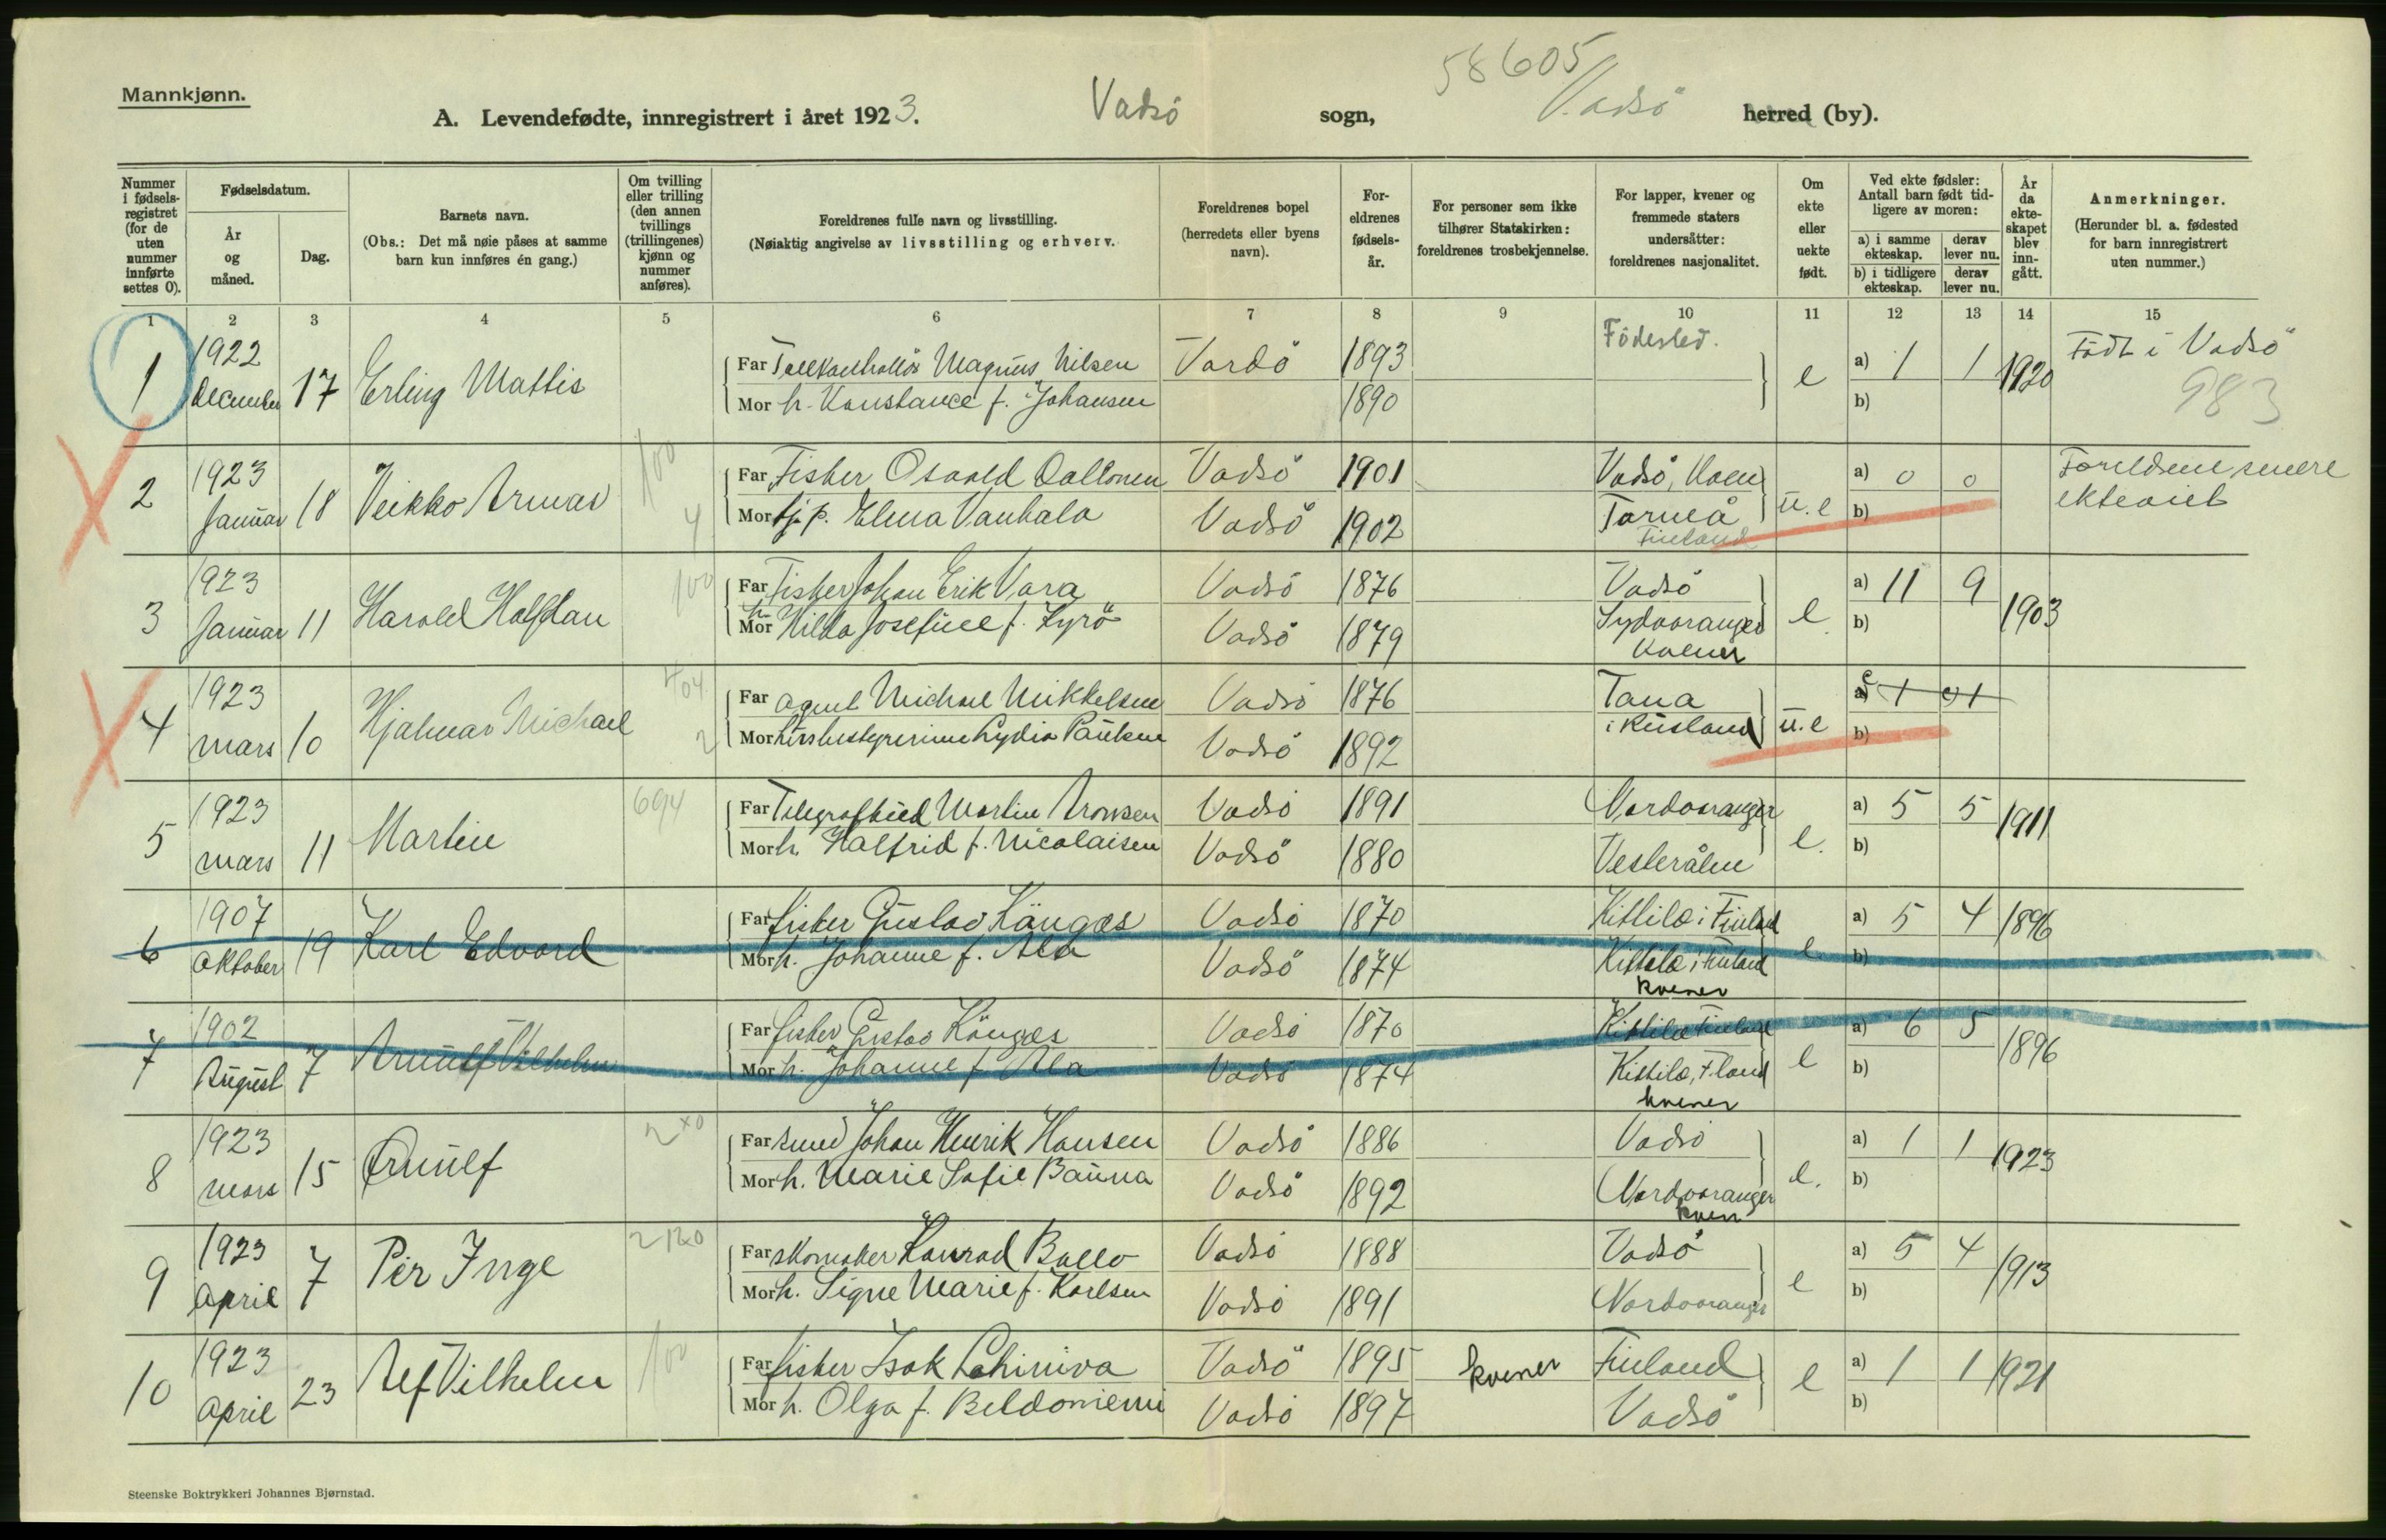 58605
Mannkjønn.
A. Levendefødte, innregistrert i året 1923. Vadsö sogn, Vadsö herred (by).
Nummer i fødsels-registret (for de uten nummer innførte settes 0).
Fødselsdatum.
År og måned.
Dag.
Barnets navn.
(Obs.: Det må nøie påses at samme barn kun innføres én gang.)
Om tvilling eller trilling (den annen tvillings (trillingenes) kjønn og nummer anføres).
Foreldrenes fulle navn og livsstilling.
(Nøiaktig angivelse av livsstilling og erhverv.
Foreldrenes bopel (herredets eller byens navn).
For-eldrenes fødsels-år.
For personer som ikke tilhører Statskirken: foreldrenes trosbekjennelse.
For lapper, kvener og fremmede staters undersåtter: foreldrenes nasjonalitet.
Om ekte eller uekte født.
Ved ekte fødsler: Antall barn født tid-ligere av moren:
a) i samme ekteskap. derav lever nu.
b) i tidligere ekteskap. derav lever nu.
År da ekte-skapet blev inn-gått.
Anmerkninger.
(Herunder bl. a. fødested for barn innregistrert uten nummer.)
1 2 3 4 5 6 7 8 9 10 11 12 13 14 15
Födested.
1 1922 December 17 Erling Mattis
Far Magnus Nilsen Vardö 1893
Mor h. Konstance f. Johansen 1890
e a) 1 1 1920
b)
Födt i Vadsö
983
2 1923 Januar 18 Veikko Armas 100 4
Far Fisker Osvald Daltonen Vadsö 1901 Vadsö, Kven
Mor tj. p. Elma Vanhala Vadsö 1902 Torneå Finland
u.e a) 0 0
b)
Foreldrene senere ekteviet
3 1923 Januar 11 Harald Halfdan 100
Far Fisker Johan Erik Vara Vadsö 1876 Vadsö
Mor h. Hilda Josefine f. Kyrö Vadsö 1879 Sydvaranger Kvener
e a) 11 9 1903
b)
4 1923 mars 10 Hjalmar Michael 404 2
Far agent Michael Mikkelsen Vadsö 1876 Tana
Mor husbestyrerinne Lydia Paulsen Vadsö 1892 i Rusland
u.e a) 1 1
b)
5 1923 mars 11 Martin 694
Far Telegrafbud Martin Aronsen Vadsö 1891 Nordvaranger
Mor h. Halfrid f. Nicolaisen Vadsö 1880 Vesterålen
e. a) 5 5 1911
b)
6 1907 Oktober 19 Karl Edvard
Far fisker Gustav Kängas Vadsö 1870 Kittilæ i Finland
Mor h. Johanne f. Ala Vadsö 1874 Kittilæ i Finland kvener
e a) 5 4 1896
b)
7 1902 August 7 Arnulf Vilhelm
Far fisker Gustav Kängas Vadsö 1870 Kittilæ Finland
Mor h. Johanne f. Ala Vadsö 1874 Kittilæ, F.land kvener
e a) 6 5 1896
b)
8 1923 mars 15 Ørnulf
Far smed Johan Henrik Hansen Vadsö 1886 Vadsö
Mor h. Marie Sofie Banna Vadsö 1892 Nordvaranger kven
e. a) 1 1 1923
b)
9 1923 April 7 Per Inge
Far skomaker Konrad Ballo Vadsö 1888 Vadsö
Mor h. Signe Marie f. Karlsen Vadsö 1891 Nordvaranger
e a) 5 4 1913
b)
10 1923 April 23 Alf Vilhelm 100
Far fisker Isak Lahiniva Vadsö 1895 kvener Finland
Mor h. Olga f. Beldoniemi Vadsö 1897 Vadsö
e a) 1 1 1921
b)
Steenske Boktrykkeri Johannes Bjørnstad.